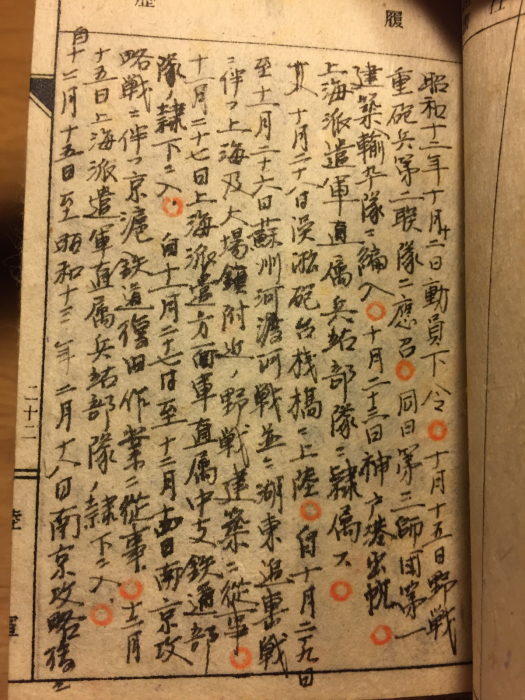 履
歴
昭和十二年十月十二日動員下令。十月十五日野戦
重砲兵第二聯隊ニ應召。同日第三師団第一
建築輸卒隊ニ編入。十月二十三日神戸港出帆。
上海派遣軍直属兵站部隊ニ隷属ス。
十月二十八日呉淞砲台桟橋ニ上陸。自十月二十九日
至十一月二十六日蘇州河渡河戦並ニ湖東追撃戦
ニ伴フ上海及大場鎮附近ノ野戦建築ニ従事。
十一月二十七日上海派遣方面軍直属中支鉄道部
隊ノ隷下ニ入。自十一月二十七日至十二月十四日南京攻
略戦ニ伴フ京滬鉄道復旧作業ニ従事。十二月
十五日上海派遣軍直属兵站部隊ノ隷下ニ入。
自十二月十五日至昭和十三年二月十八日南京攻略後ニ
二十二